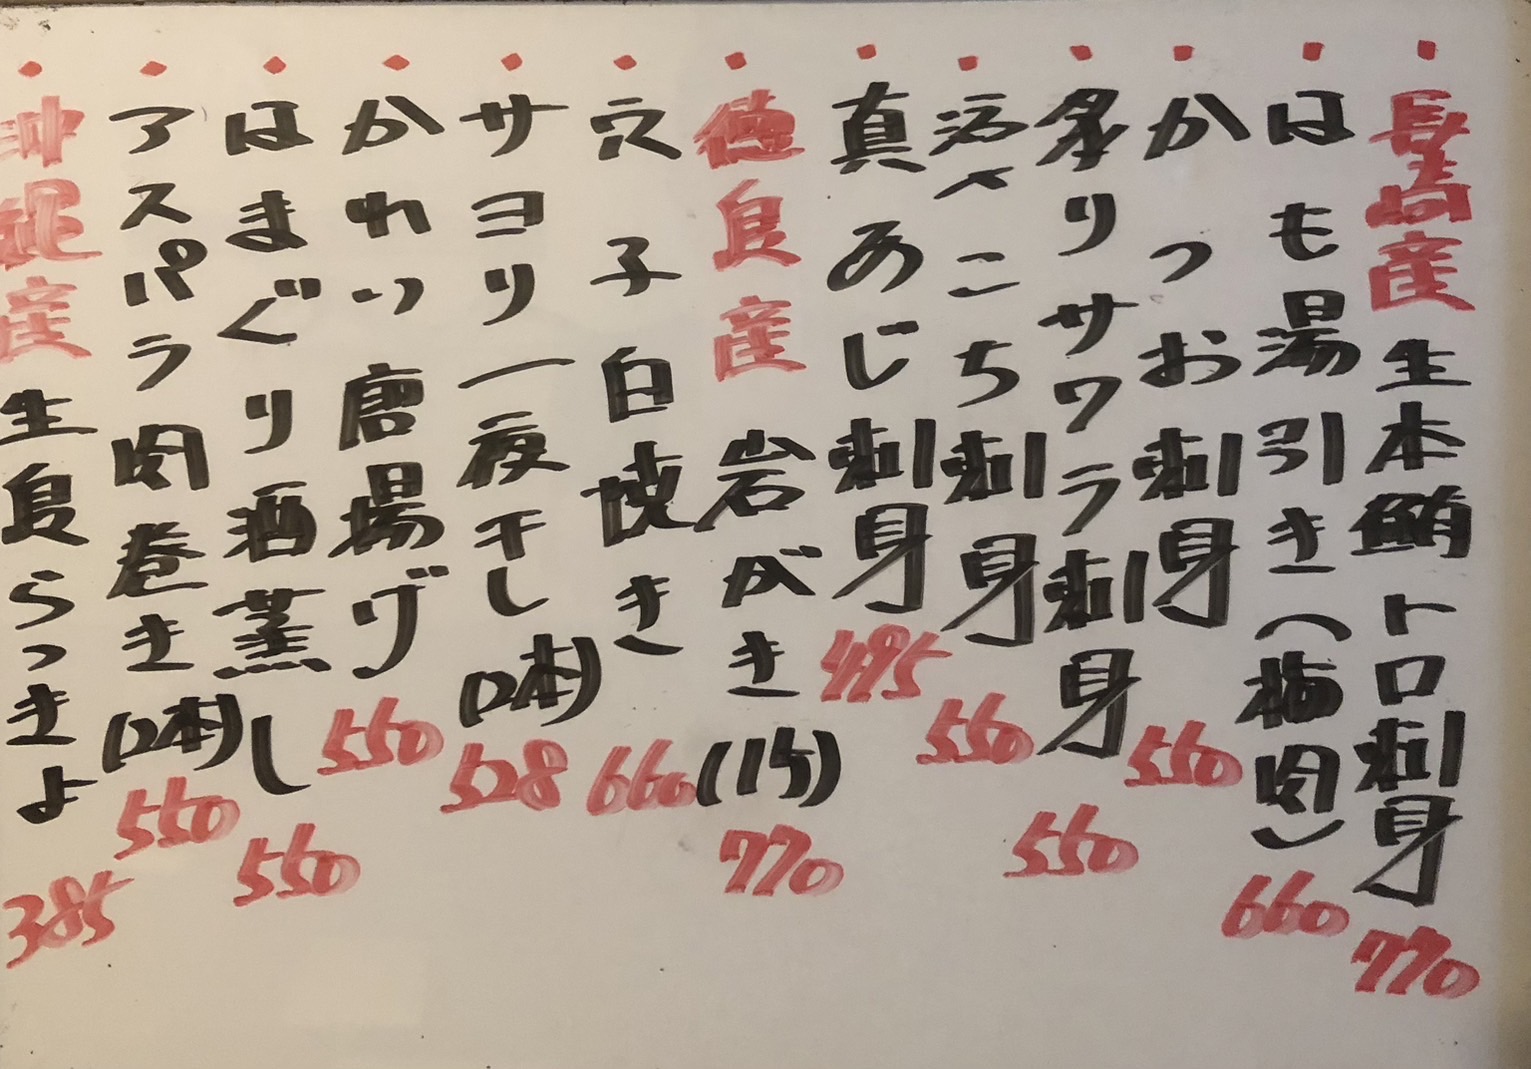 長崎産 生本鮪トロ刺身 770
はも湯引き(梅肉) 660
かつお刺身 550
炙りサワラ刺身 550
活〆こち刺身 550
真あじ刺身 495
徳島産 岩がき(1ケ) 770
穴子白焼き 660
サヨリ一夜干し(2本) 528
かれい唐揚げ 550
はまぐり酒蒸し 550
アスパラ肉巻き(2本) 550
沖縄産 生島らっきょ 385